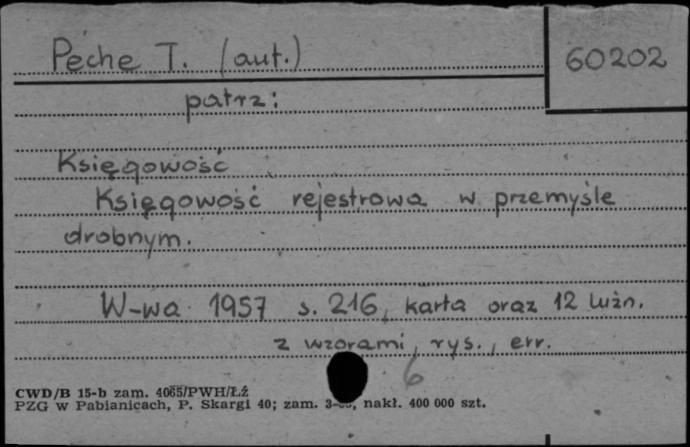 Peche T. (aut.)
60202
patrz:
Księgowość
Księgowość rejestrowa w przemyśle
drobnym.
W-wa 1957 s. 216, karta oraz 12 luźn.
z wzorami, rys., err.
6
CWD/B 15-b zam. 4065/PWH/Łź
PZG w Pabianicach, P. Skargi 40; zam. nakł. 400 000 szt.